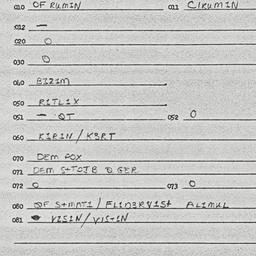 010 OF RUMIN 011 CIRUMIN
012 —
020 O
030 O
040 BIZIM
050 RITLIX
051 — QT 052 O
060 KIRIN / KBRT
070 DEM FOX
071 DEM STOIB O GER
072 O 073 O
080 OF / ALIMUL
081 VISIN / VISTIN